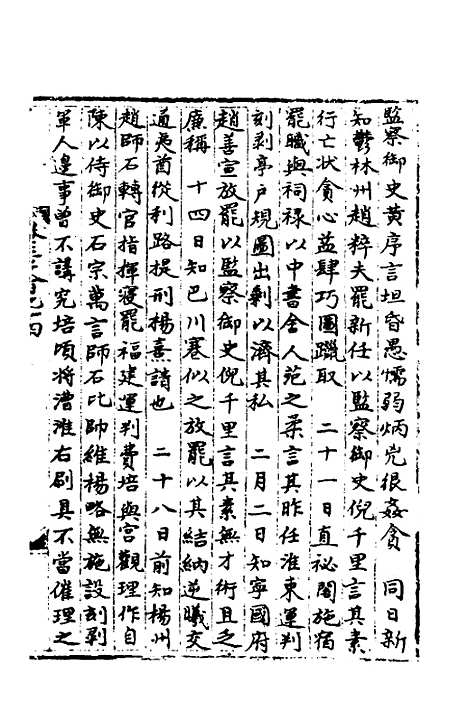 監察御史黄序言坦昏愚懦弱炳兇很姦貪　同日新
知鬱林州趙粹夫罷新任以監察御史倪千里言其素
行亡狀貪心益肆巧圖躐取　二十一日直祕閣施宿
罷職與祠禄以中書舍人范之柔言其昨任淮東運判
刻剥亭户規圖出剰以濟其私　二月二日知寧國府
趙善宣放罷以監察御史倪千里言其素無才術且乏
廉稱　十四日知巴川蹇似之放罷以其結納逆曦交
通夷酋從利路提刑楊熹請也　二十八日前知楊州
趙師石轉官指揮寝罷福建運判費培與宫觀理作自
陳以侍御史石宗萬言師石比帥維楊略無施設刻剥
軍人邊事曾不講究培頃將漕淮右刷具不當催理之